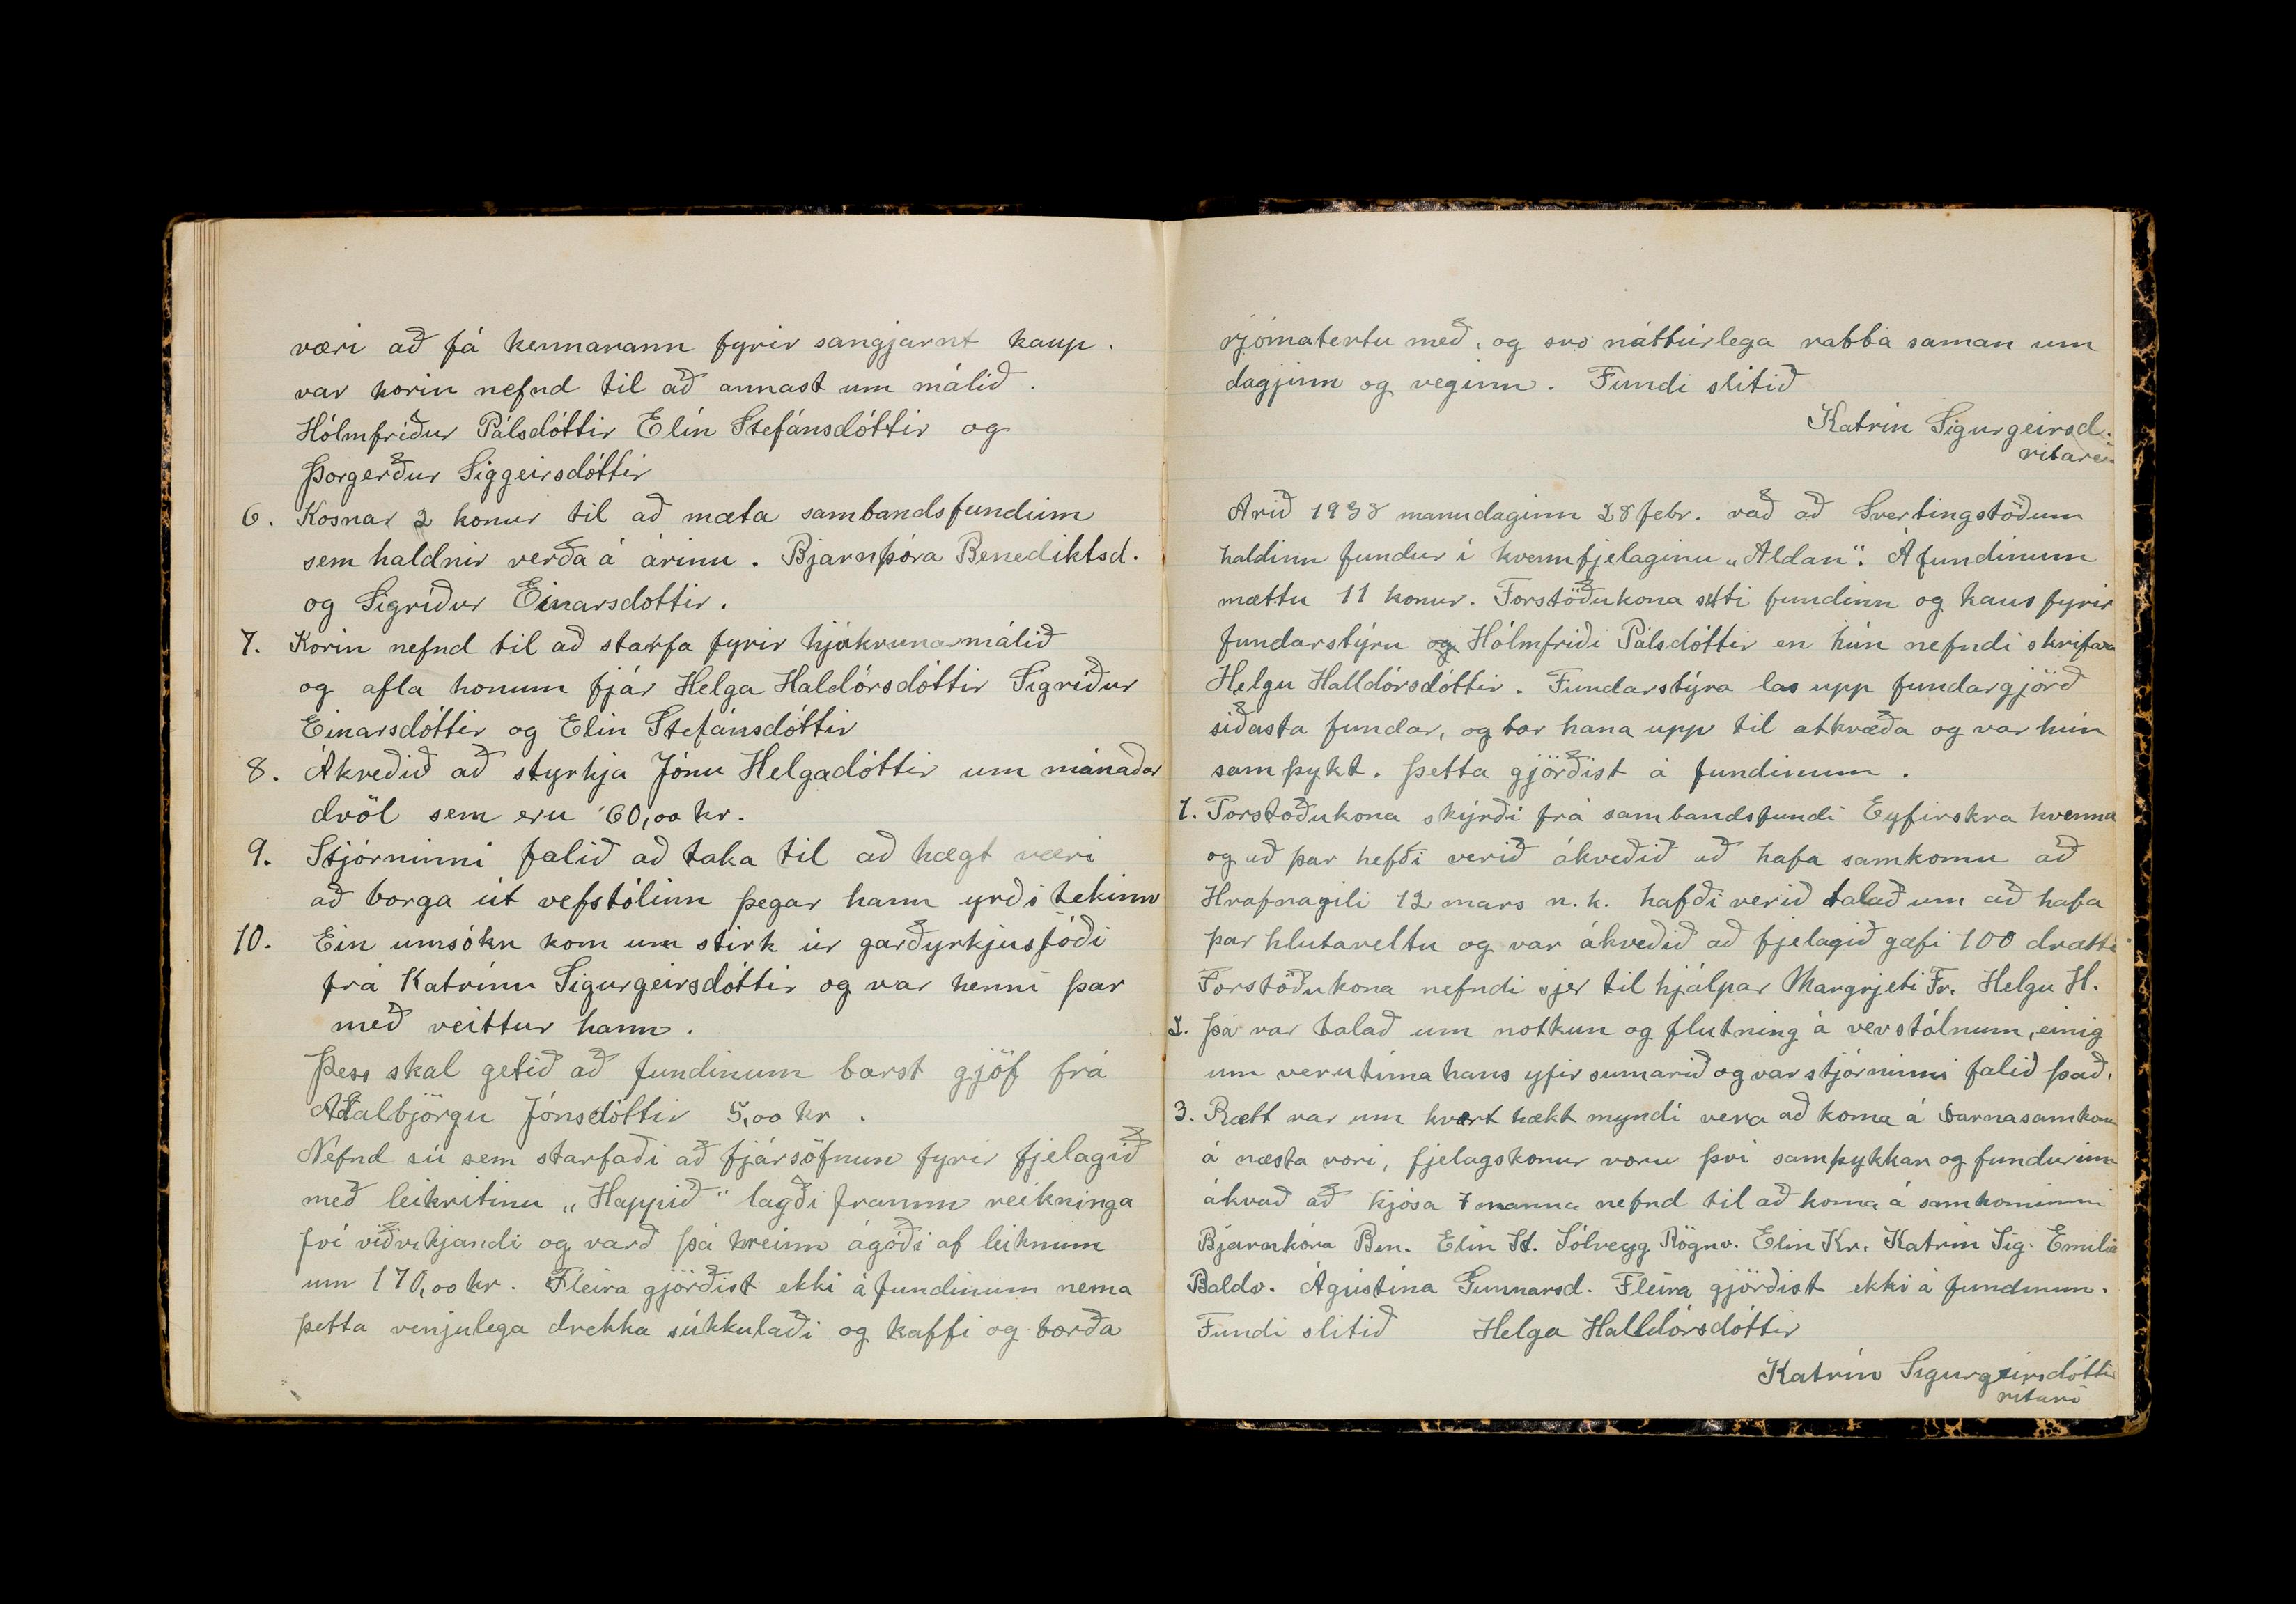 væri að fá kennarann fyrir sangjarnt kaup.
var korin nefnd til að annast um málið.
Hólmfríður Pálsdóttir Elín Stefánsdóttir og
Þorgerður Siggeirsdóttir
6. Kosnar 2 konur til að mæta sambandsfundum
sem haldnir verða á árinu. Bjarnþóra Benediktsd.
og Sigríður Einarsdottir.
7. Korin nefnd til að starfa fyrir hjúkrunarmálið
og afla honum fjár Helga Haldórsdóttir Sigríður
Einarsdóttir og Elin Stefánsdóttir
8. Ákveðið að styrkja Jónu Helgadóttir um mánaðar
dvöl sem eru 60,00 kr.
9. Stjórninni falið að taka til að hægt væri
að borga út vefstólinn þegar hann yrði tekinn
10. Ein umsókn kom um stirk úr garðyrkjusjóði
frá Katrínu Sigurgeirsdóttir og var henni þar
með veittur hann.
Þess skal getið að fundinum barst gjöf frá
Aðalbjörgu Jónsdóttir 5,00 kr.
Nefnd sú sem starfaði að fjársöfnun fyrir fjelagið
með leikritinu „Happið" lagði framm reikninga
því viðvíkjandi og varð þá hreinn ágóði af leiknum
um 170,00 kr. Fleira gjörðist ekki á fundinum nema
þetta venjulega drekka súkkulaði og kaffi og borða
rjómatertu með, og svo náttúrlega rabba saman um
dagjinn og veginn. Fundi slitið
Katrín Sigurgeirsd.
ritari
Arið 1938 manudaginn 28 febr. vað að Svertingstöðum
haldinn fundur í kvennfjelaginu „Aldan". Á fundinum
mættu 11 konur. Forstöðukona setti fundinn og kaus fyrir
fundarstýru og Hólmfríði Pálsdóttir en hún nefndi skrifara
Helgu Halldórsdóttir. Fundarstýra las upp fundargjörð
síðasta fundar, og bar hana upp til atkvæða og var hún
samþykt. Þetta gjörðist á fundinum.
1. Forstöðukona skýrði frá sambandsfundi Eyfirskra kvenna
og að þar hefði verið ákveðið að hafa samkomu að
Hrafnagili 12 mars n.k. hafði verið talað um að hafa
þar hlutaveltu og var ákveðið að fjelagið gæfi 100 drætti
Forstöðukona nefndi sjer til hjálpar Margrjeti Fr. Helgu H.
2. Þá var talað um notkun og flutning á vevstólnum, einig
um verutíma hans yfir sumarið og var stjórninni falið það.
3. Rætt var um kvort hækt myndi vera að koma á barnasamkomu
á næsta vori, fjelagskonur voru því samþykkar og fundurinn
ákvað að kjósa 7 manna nefnd til að koma á samkominni
Bjarnþóra Ben. Elin St. Sólveyg Rögnv. Elin Kr. Katrín Sig. Emilia
Baldv. Ágústína Gunnarsd. Fleira gjörðist ekki á fundinum.
Fundi slitið Helga Halldórsdóttir
Katrín Sigurgeirsdóttir
ritari